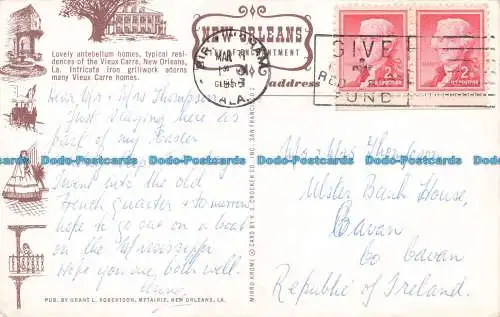 Lovely antebellum homes, typical resi-
dences of the Vieux Carre, New Orleans,
La. Intricate iron grillwork adorns
many Vieux Carre homes.
Dear Mr & Mrs Thompson,
Just staying here as
part of my Easter
I went into the old
French quarter & tomorrow
hope to go on a boat
on the Mississippi
Hope you are both well.
PUB. BY GRANT L. ROBERTSON, METAIRIE, NEW ORLEANS, LA.
MIRRO-KROME ® CARD BY H. S. CROCKER CO., INC., SAN FRANCISCO
NEW ORLEANS
CITY OF ENCHANTMENT
address
MAR
ALA.
GIVE
RED
FUND
2¢
2¢
Mr & Mrs Thompson
Ulster Bank House,
Cavan
Co Cavan
Republic of Ireland.
Dodo-Postcards Dodo-Postcards Dodo-Postcards Dodo-Postcards Dodo-Postcards
Dodo-Postcards Dodo-Postcards Dodo-Postcards Dodo-Postcards Dodo-Postcards